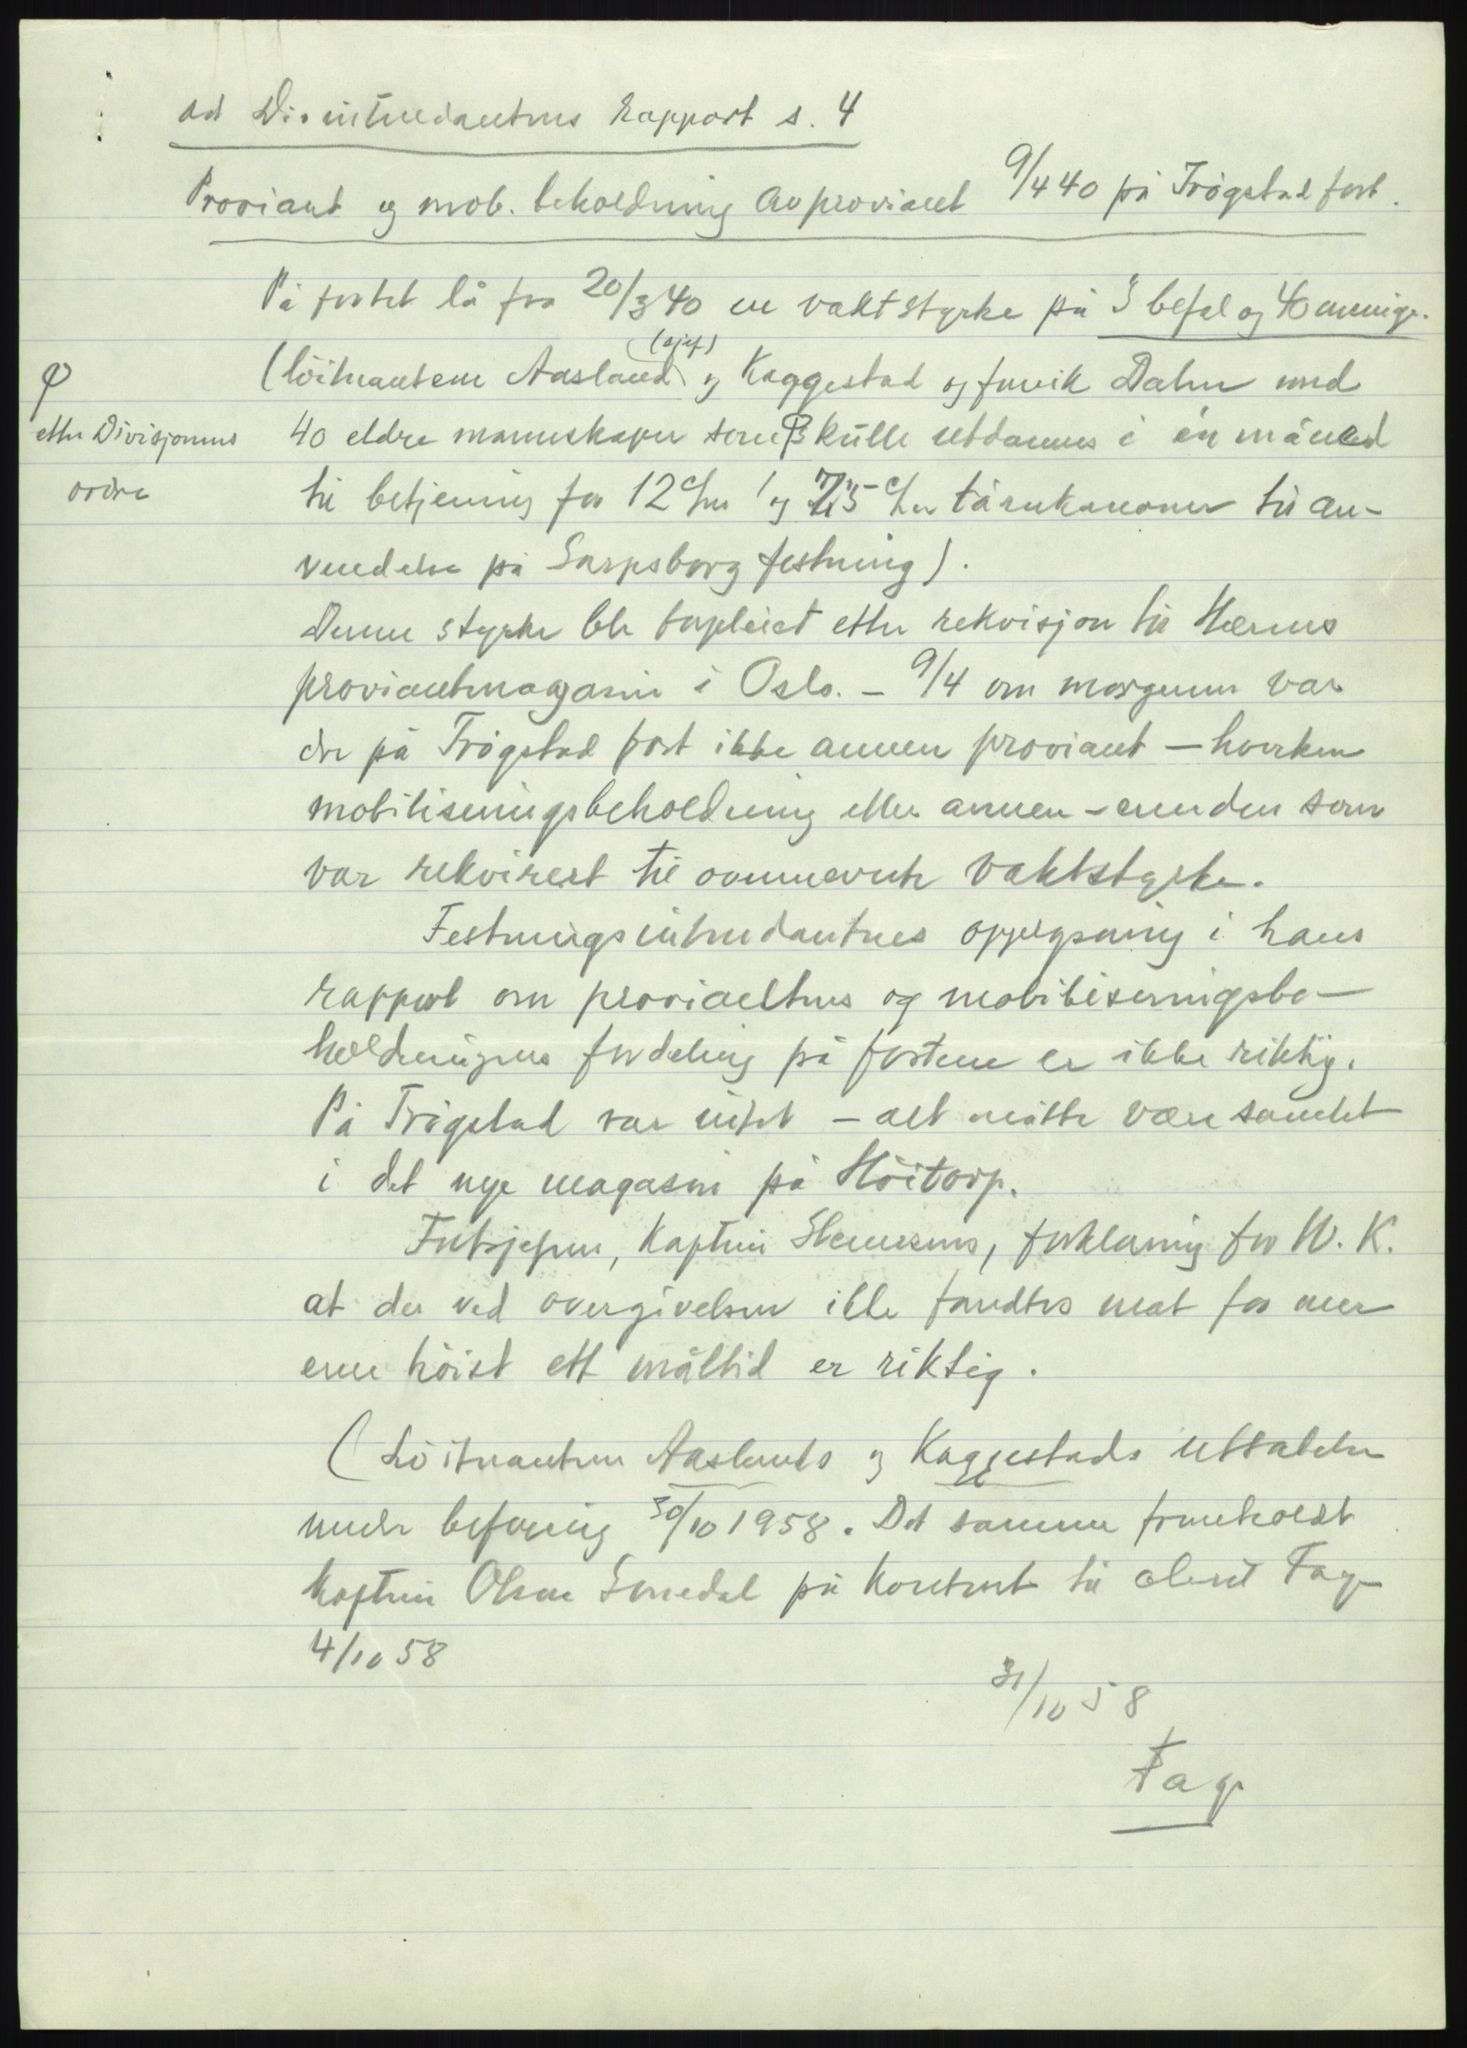 ad Div.intendantens rapport s. 4
Proviant og mob. beholdning av proviant 9/4 40 på Trøgstad fort.
På fortet lå fra 20/3 40 en vaktstyrke på 3 befal og 40 menige.
(sjef)
(löitnantene Aasland og Kaggestad og furér Dahn med
φ
etter Divisjonens
ordre
40 eldre mannskaper som φ skulle utdannes i én måned
til betjening for 12 cm og 7,5 cm tårnkanoner til an-
vendelse på Sarpsborg festning).
Denne styrke ble forpleiet etter rekvisjon til Hærens
proviantmagasin i Oslo. – 9/4 om morgenen var
der på Trøgstad fort ikke annen proviant – hverken
mobiliseringsbeholdning eller annen – enn den som
var rekvirert til ovennevnte vaktstyrke.
Festningsintendantens opplysning i hans
rapport om proviantens og mobiliseringsbe-
holdningens fordeling på fortene er ikke riktig.
På Trøgstad var intet – alt måtte være samlet
i det nye magasin på Höitorp.
Fortsjefen, kaptein, forklaring for W. K.
at der ved overgivelsen ikke fandtes mat for mer
enn höist ett måltid er riktig.
(Löitnantene Aaslands og Kaggestads uttalelse
under befaring 30/10 1958. Det samme fremholdt
kaptein Olsen på kontoret til oberst Fag
4/10 58
31/10 58
Fag